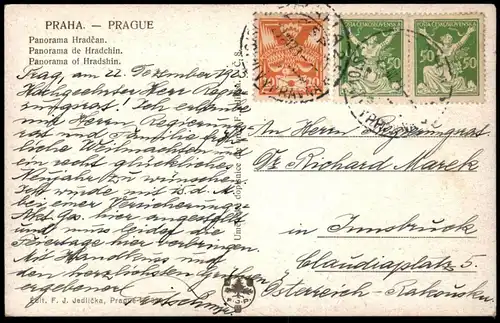 PRAHA. — PRAGUE
Panorama Hradčan.
Panorama de Hradchin.
Panorama of Hradshin.
Prag, am 22. Dezember 192
Hochgeehrter Herr Regie-
rungsrat! Ich erlaube
mir Herrn Regierungs-
rat und Familie fröh-
liche Weihnachten und
ein recht glückliches
Neujahr zu wünschen
Ich wurde mit d. M.
bei einer Versicherungs-
Akt. Ges. hier angestellt
und muss leider die
Feiertage hier verbringen.
Mit Handkuss und
den herzlichsten Grüssen
ergebener
Edit. F. J. Jedlička, Prague
ČESKOSLOVENSKÁ
20
POŠTA ČESKOSLOVENSKÁ
50
POŠTA ČESKOSLOVENSKÁ
50
An Herrn Regierungsrat
Dr. Richard Marek
in Innsbruck
Claudiaplatz 5.
Österreich Rakousko
F J P